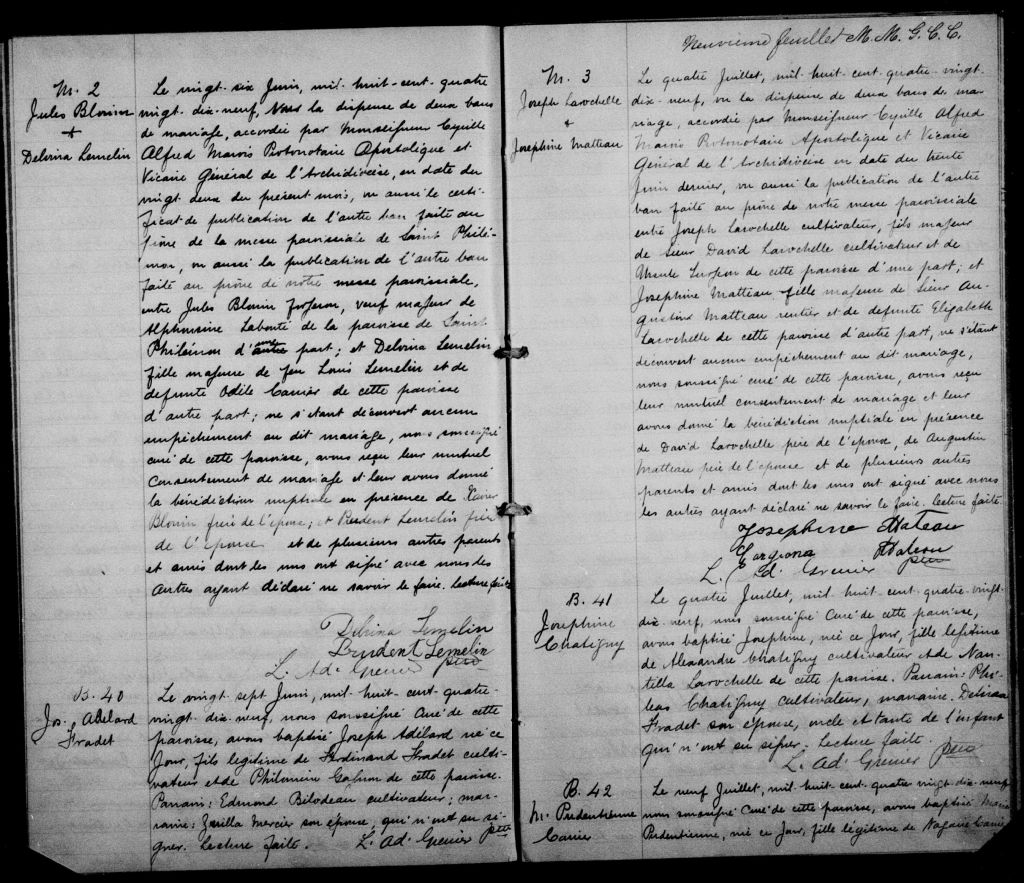 M. 2
Jules Blouin
+
Delvina Lemelin
Le vingt-six Juin, mil-huit-cent-quatre
vingt-dix-neuf, vu la dispense de deux bans
de mariage, accordée par Monseigneur Cyrille
Alfred Marois Protonotaire Apostolique et
Vicaire Général de l'Archidiocèse, en date du
vingt deux du présent mois, vu aussi le certi-
ficat de publication de l'autre ban faite au
prône de la messe paroissiale de Saint Philé-
mon, vu aussi la publication de l'autre ban
faite au prône de notre messe paroissiale,
entre Jules Blouin forgeron, veuf majeur de
Alphonsine Labonté de la paroisse de Saint
Philémon d'une part; et Delvina Lemelin
fille majeure de feu Louis Lemelin et de
defunte Odile Carrier de cette paroisse
d'autre part; ne s'étant découvert aucun
empêchement au dit mariage, nous soussigné
curé de cette paroisse, avons reçu leur mutuel
consentement de mariage et leur avons donné
la bénédiction nuptiale en présence de Xavier
Blouin frère de l'époux; et Prudent Lemelin frère
de l'épouse et de plusieurs autres parents
et amis dont les uns ont signé avec nous les
autres ayant déclaré ne savoir le faire. Lecture faite
Delvina Lemelin
Prudent Lemelin
L. Ad. Grenier ptre
B. 40
Jos. Adélard
Fradet
Le vingt sept Juin, mil-huit-cent-quatre-
vingt-dix-neuf, nous soussigné Curé de cette
paroisse, avons baptisé Joseph Adélard né ce
Jour, fils légitime de Ferdinand Fradet culti-
vateur et de Philomène Gagnon de cette paroisse.
Parrain: Edmond Bilodeau cultivateur; mar-
raine: Zoëlla Mercier son épouse, qui n'ont su si-
gner. Lecture faite. L. Ad. Grenier ptre
Neuvième feuillet M. M. G. C. C.
M. 3
Joseph Larochelle
+
Josephine Matteau
Le quatre Juillet, mil-huit-cent-quatre-vingt-
dix-neuf, vu la dispense de deux bans de ma-
riage, accordée par Monseigneur Cyrille Alfred
Marois Protonotaire Apostolique et Vicaire
Général de l'Archidiocèse en date du trente
Juin dernier, vu aussi la publication de l'autre
ban faite au prône de notre messe paroissiale
entre Joseph Larochelle cultivateur, fils majeur
de Sieur David Larochelle cultivateur et de
Ursule Turgeon de cette paroisse d'une part; et
Josephine Matteau fille majeure de Sieur Au-
gustin Matteau rentier et de defunte Elizabeth
Larochelle de cette paroisse d'autre part, ne s'étant
découvert aucun empêchement au dit mariage,
nous soussigné curé de cette paroisse, avons reçu
leur mutuel consentement de mariage et leur
avons donné la bénédiction nuptiale en présence
de David Larochelle père de l'époux, de Augustin
Matteau père de l'épouse et de plusieurs autres
parents et amis dont les uns ont signé avec nous
les autres ayant déclaré ne savoir le faire. Lecture faite
Josephine Mateau
Mateau
L. Ad. Grenier ptre
B. 41
Josephine
Chatigny
Le quatre Juillet, mil-huit-cent-quatre-vingt-
dix-neuf, nous soussigné Curé de cette paroisse,
avons baptisé Josephine, née ce Jour, fille légitime
de Alexandre Chatigny cultivateur et de
Larochelle de cette paroisse. Parrain: Phi-
leas Chatigny cultivateur, marraine: Delvina
Fradet son épouse, oncle et tante de l'enfant
qui n'ont su signer. Lecture faite.
L. Ad. Grenier ptre
B. 42
M. Prudentienne
Carrier
Le neuf Juillet, mil-huit-cent-quatre-vingt-dix-neuf
nous soussigné Curé de cette paroisse, avons baptisé Marie
Prudentienne, née ce Jour, fille légitime de Nazaire Carrier